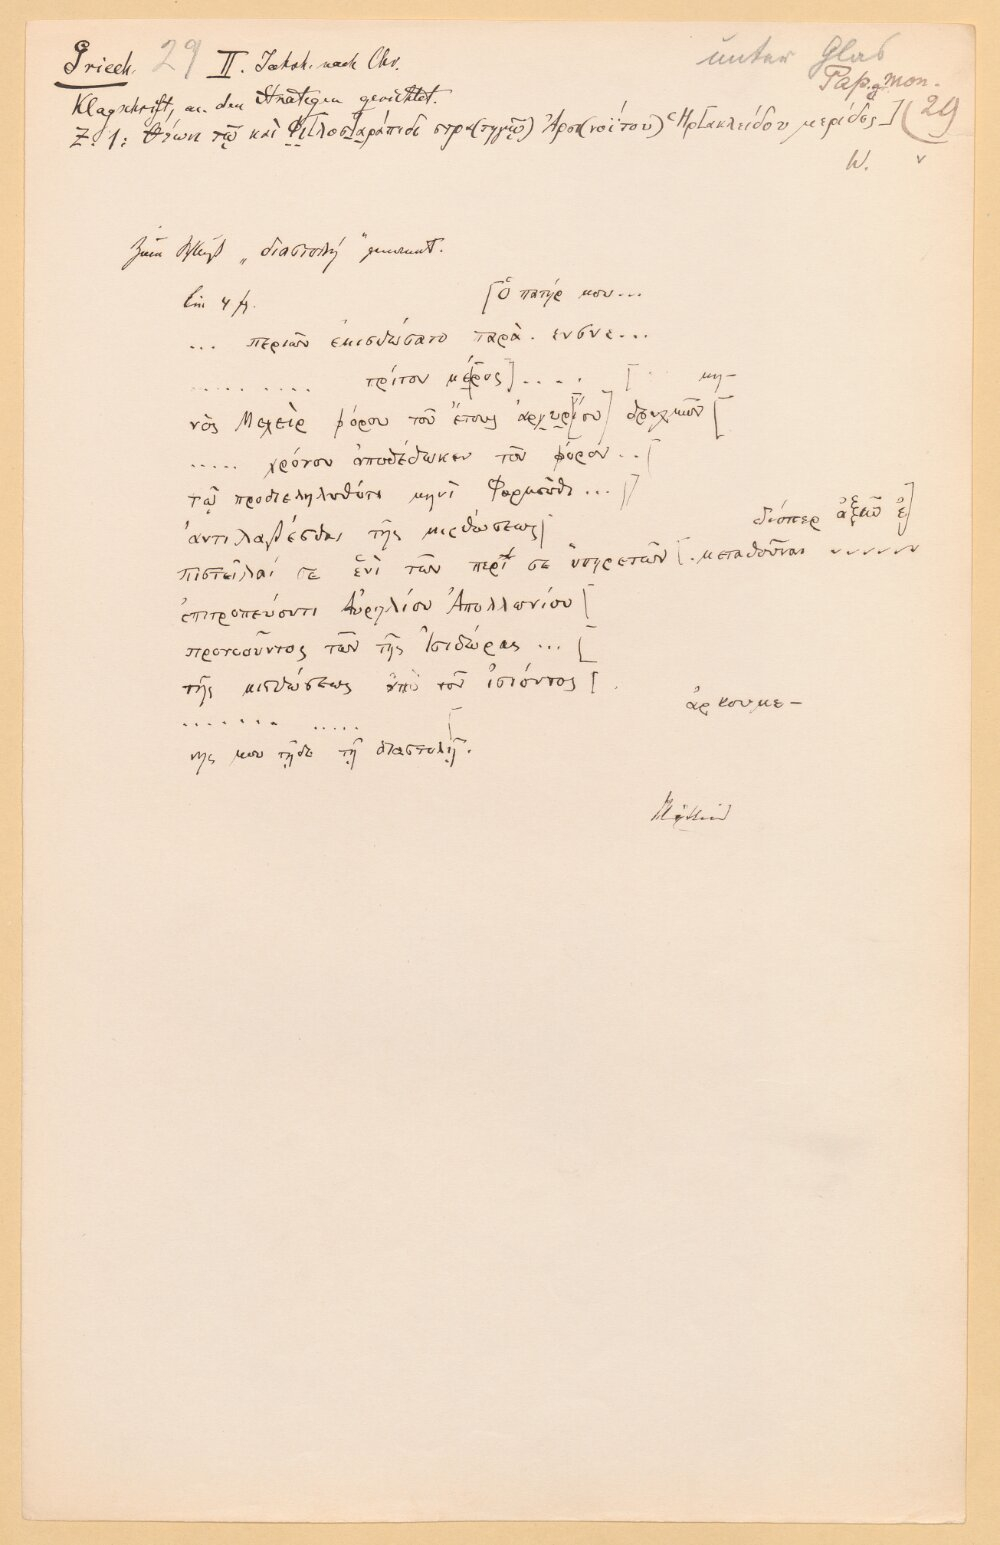 Griech. 29 II. Jahrh. nach Chr.
unter Glas
Pap. g. Mon. 29
Klagschrift, an den Strategen gerichtet.
Z. 1: Θέωνι τῷ καὶ Φιλοσαράπιδι στρα(τηγῷ) Ἀρσι(νοΐτου) Ἡρ[ακλείδου μερίδος]
W.
„διαστολή" genannt.
Lin 4 [ὁ πατήρ μου...
... περιὼν ἐμισθώσατο παρὰ . ενσνε...
..... .... τρίτον μέρος] .... [ μη-
νὸς Μεχεὶρ φόρου τοῦ ἔτους ἀργυρ[ίου] δραχμῶν [
..... χρόνου ἀποδέδωκεν τὸν φόρον .. [
τῷ προδιεληλυθότι μηνὶ Φαρμοῦθι ... ]
ἀντιλαβέσθαι τῆς μισθώσεως [ διόπερ ἀξιῶ ἐ]
πιστεῖλαί σε ἑνὶ τῶν περί σε ὑπηρετῶν [. μεταδοῦναι
ἐπιτροπεύοντι Αὐρηλίου Ἀπολλωνίου [
προνοοῦντος τῶν τῆς Ἰσιδώρας ... [
τῆς μισθώσεως ὑπὸ τοῦ ἰσιόντος [ .
....... ..... [ ἀρκουμέ-
νης μου τῇδε τῇ διαστολῇ.